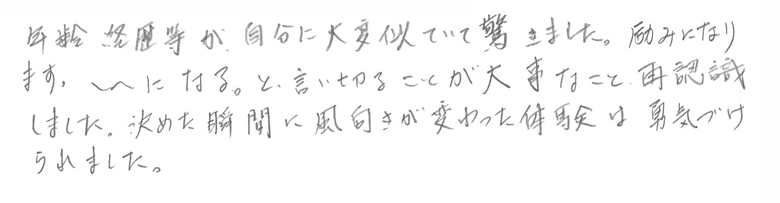 年齢経歴等が、自分に大変似ていて驚きました。励みになり
ます。〜になる。と、言い切ることが大事なこと、再認識
しました。決めた瞬間に風向きが変わった体験は勇気づけ
られました。